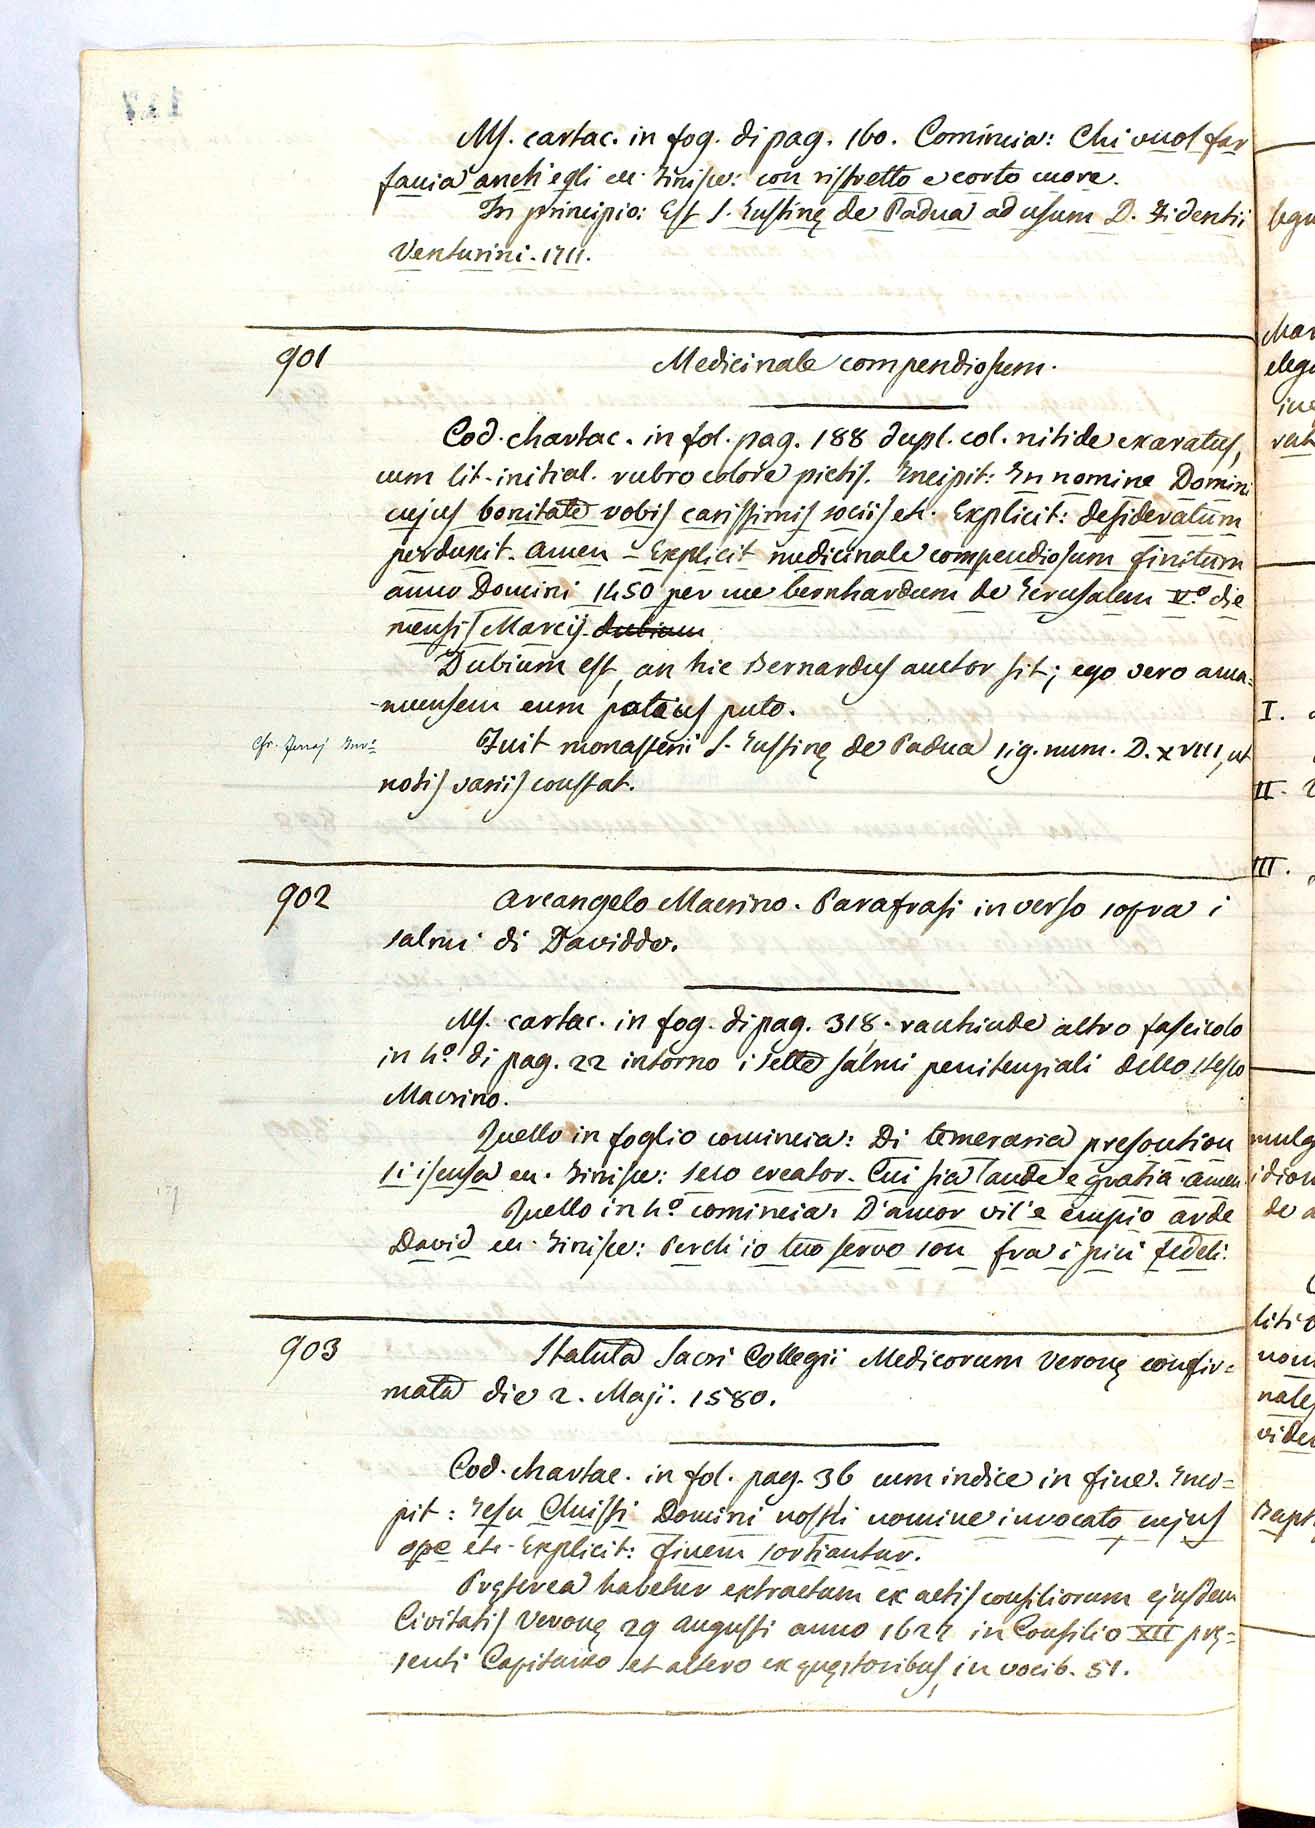 Ms. cartac. in fog. di pag. 160. Comincia: Chi vuol far
faccia anch'egli ec. Finisce: con ristretto e corto cuore.
In principio: Est S. Justinę de Padua ad usum D. Fidentii
Venturini. 1711.
901
Medicinale compendiosum.
Cod. chartac. in fol. pag. 188 dupl. col. nitide exaratus,
cum lit. initial. rubro colore pictis. Incipit: In nomine Domini
cujus bonitate vobis carissimis sociis etc. Explicit: desideratum
perduxit. amen – Explicit medicinale compendiosum finitum
anno Domini 1450 per me bernhardum de Jerusalem V.º die
mensis Marcij. dubium
Dubium est, an hic Bernardus auctor sit; ego vero ama-
-nuensem eum potius puto.
Cfr. Inv.
Fuit monasterii S. Justinę de Padua sig. num. D. XVIII, ut
notis variis constat.
902
Arcangelo Macrino. Parafrasi in verso sopra i
salmi di Davidde.
Ms. cartac. in fog. di pag. 318. racchiude altro fascicolo
in 4.º di pag. 22 intorno i sette salmi penitenziali dello stesso
Macrino.
Quello in foglio comincia: Di temeraria presontion
si isensa ec. Finisce: suo creator. Cui sia laude e gratia. amen.
Quello in 4.º comincia: D'amor vil'e empio arde
David ec. Finisce: Perch'io tuo servo son fra i più fedeli.
903
Statuta Sacri Collegii Medicorum Veronę confir=
mata die 2. Maji. 1580.
Cod. chartac. in fol. pag. 36 cum indice in fine. Inci=
pit: Jesu Christi Domini nostri nomine invocato, cujus
ope etc. Explicit: finem sortiantur.
Pręterea habetur extractum ex actis consiliorum ejusdem
Civitatis Veronę 29 Augusti anno 1622 in Consilio XII prę=
senti Capitaneo et altero ex quęstoribus, in vocib. 51.